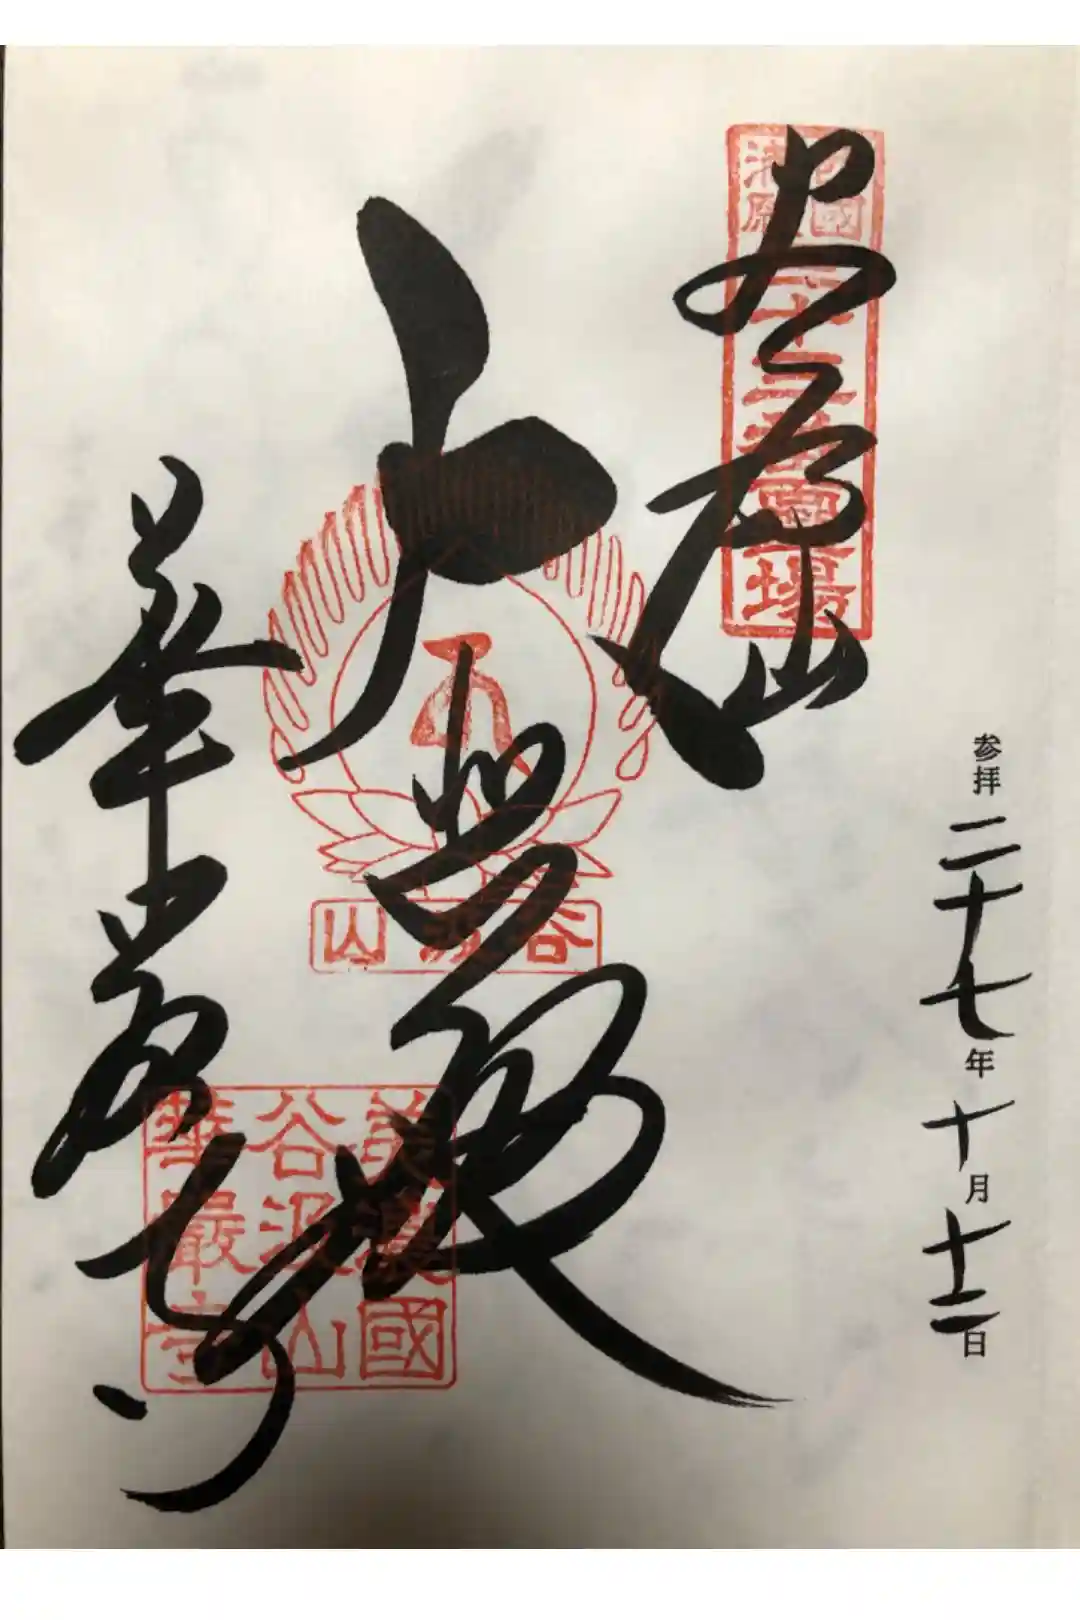 西國
満願
三十三番霊場
参拝 二十七年 十月十二日
大悲殿
谷汲山
美濃國
谷汲山
華嚴寺
華厳寺